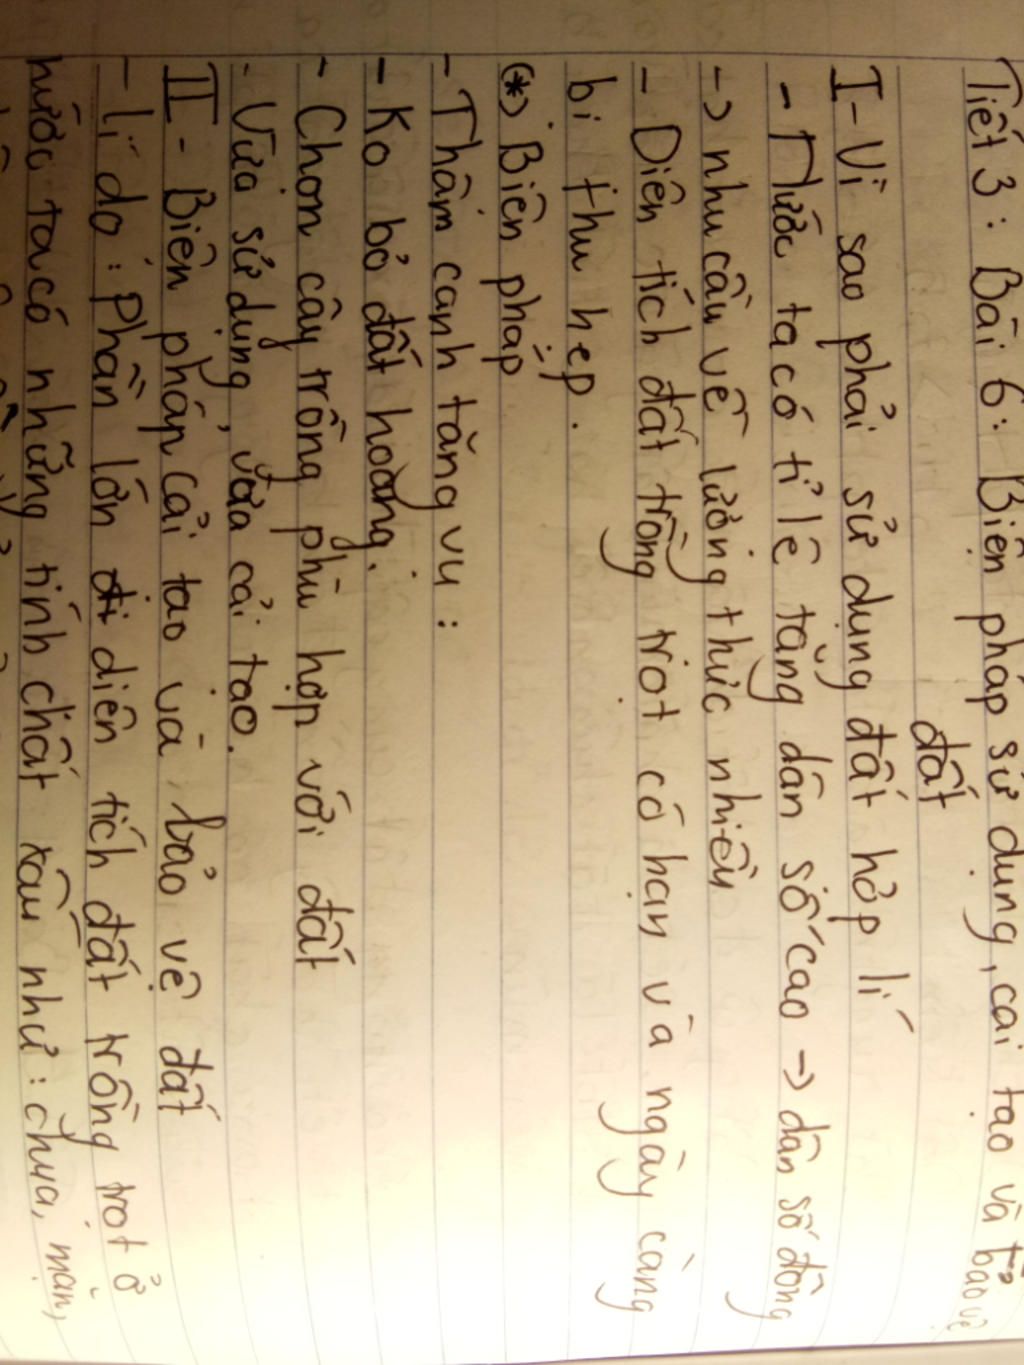 Tiết 3: Bài 6: Biện pháp sử dụng, cải tạo và bảo vệ
đất
I - Vì sao phải sử dụng đất hợp lí
- Nước ta có tỉ lệ tăng dân số cao -> dân số đông
-> nhu cầu về lương thực nhiều
- Diện tích đất trồng trọt có hạn và ngày càng
bị thu hẹp.
(*) Biện pháp
- Thâm canh tăng vụ:
- Ko bỏ đất hoang.
- Chọn cây trồng phù hợp với đất
- Vừa sử dụng, vừa cải tạo.
II - Biện pháp cải tạo và bảo vệ đất
- lí do: Phần lớn diện tích đất trồng trọt ở
nước ta có những tính chất xấu như: chua, mặn,